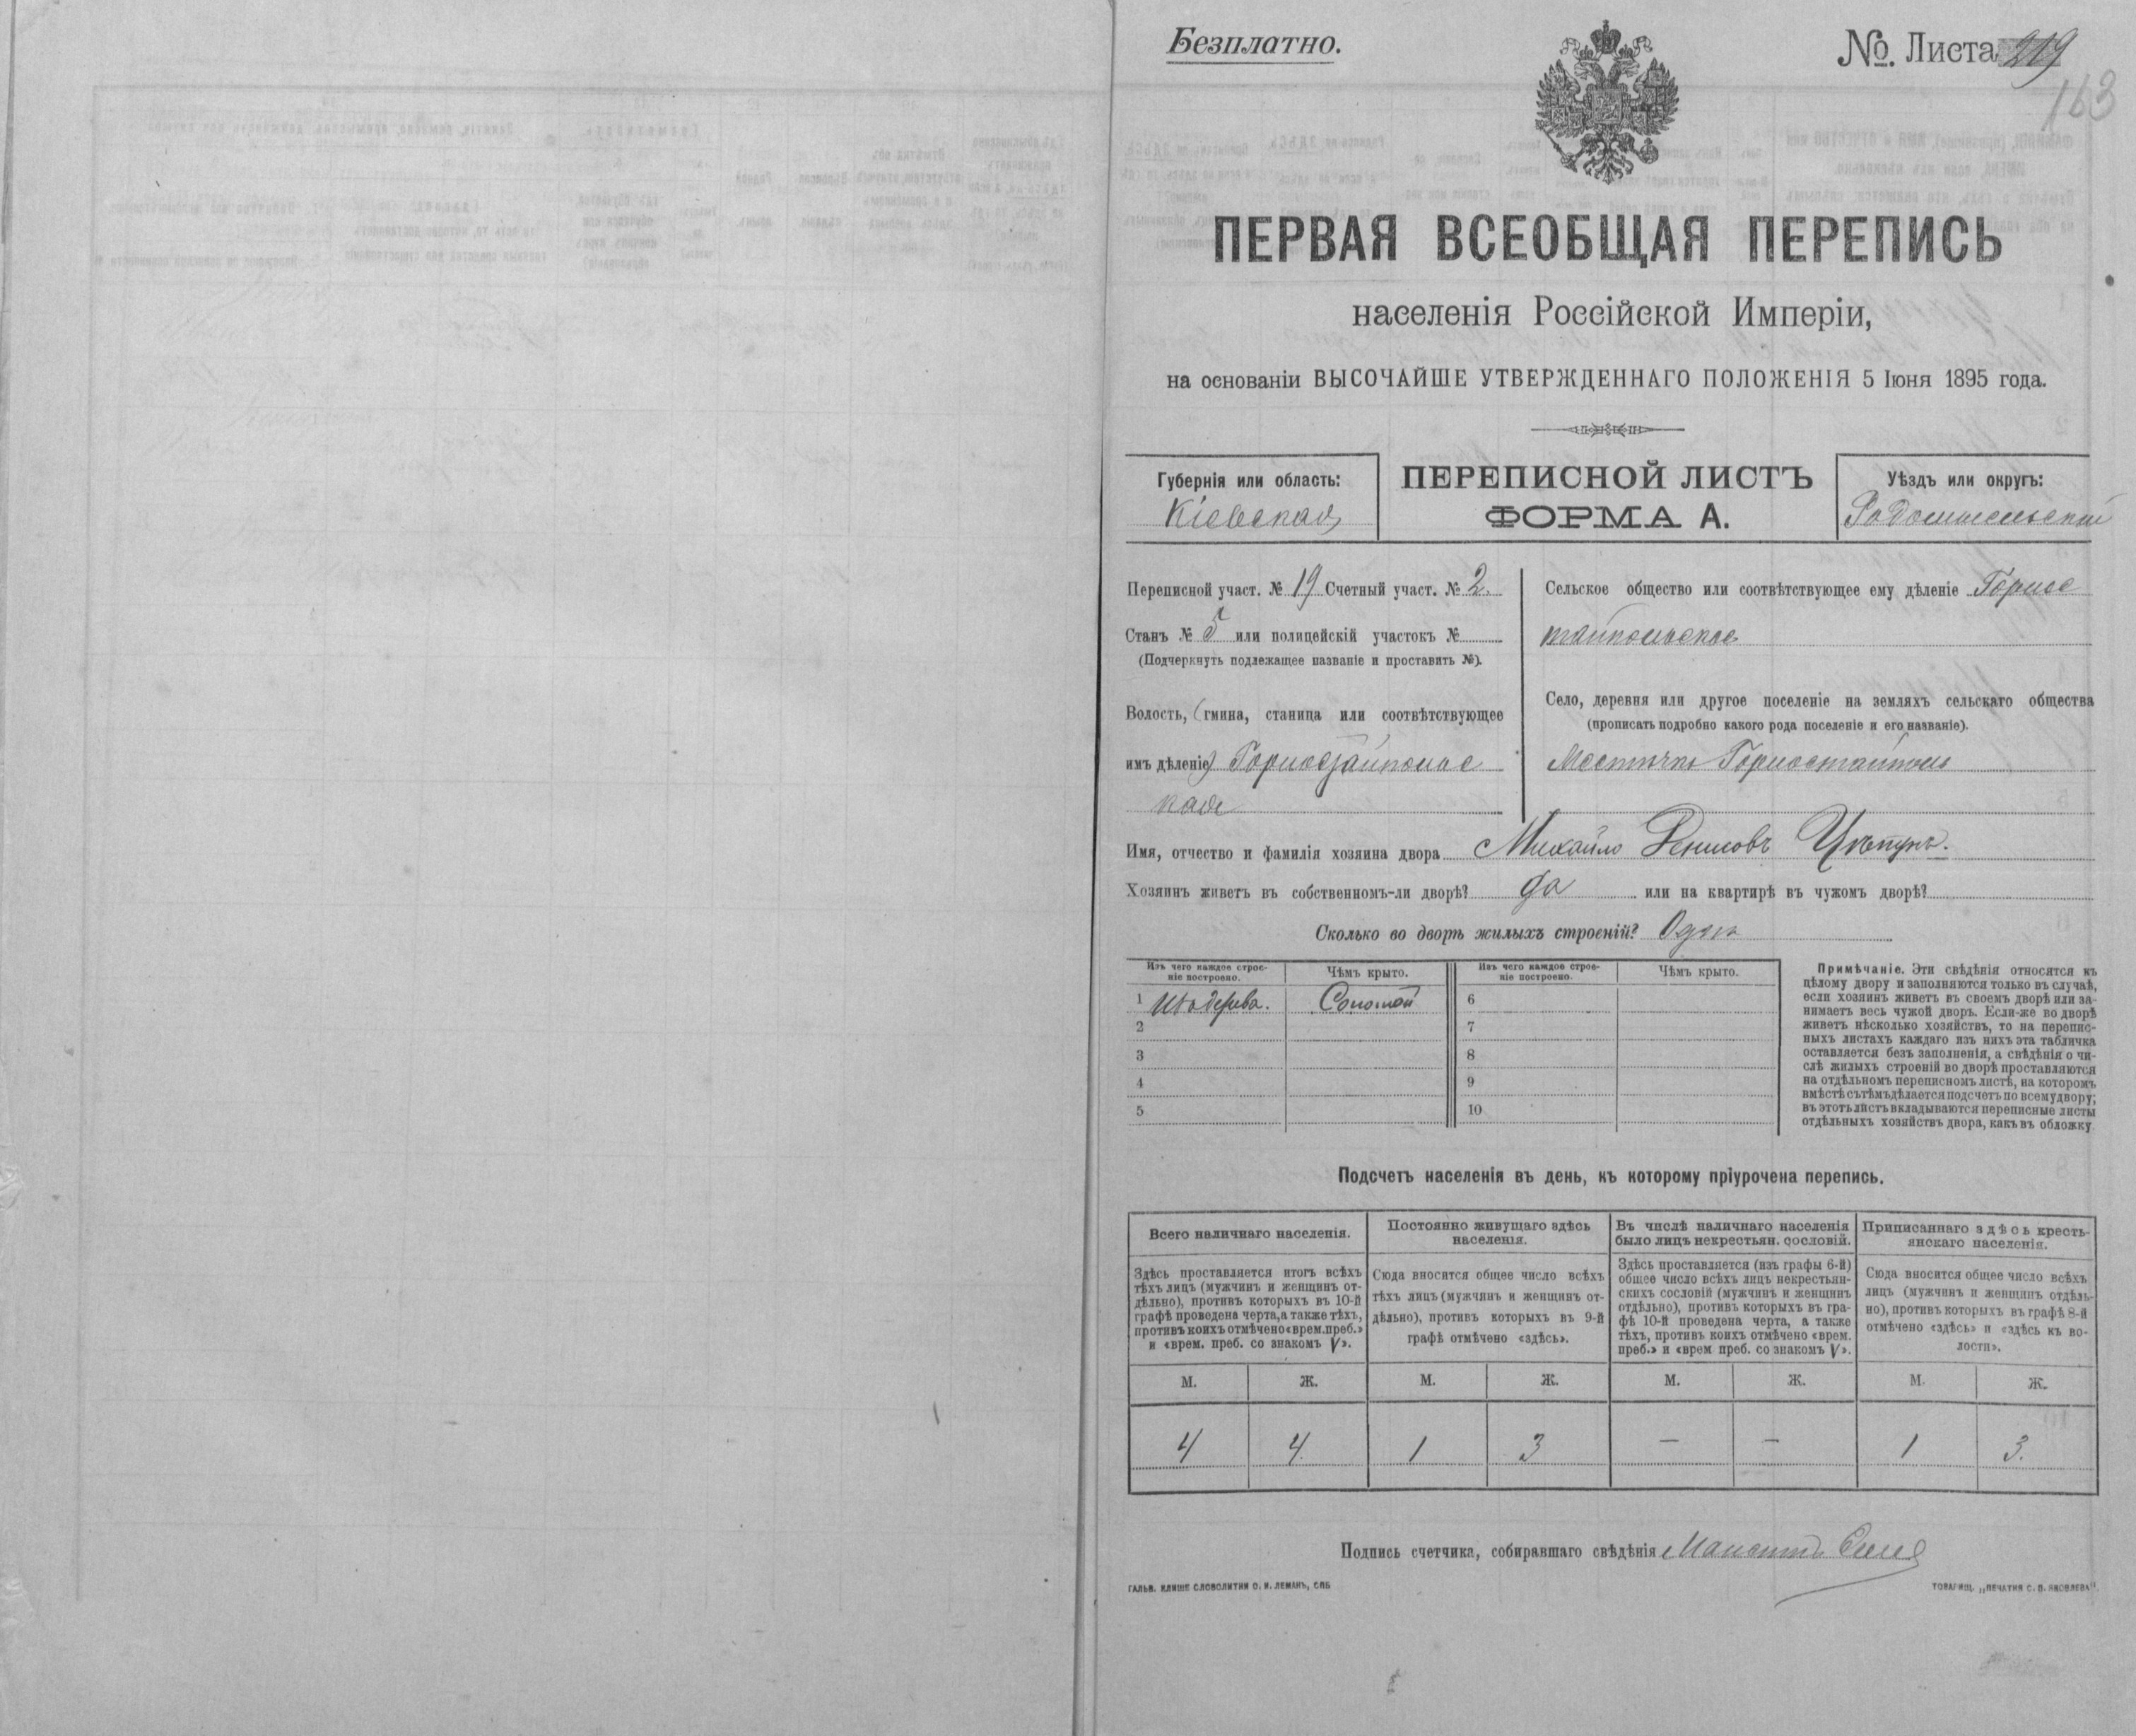 Безплатно.
№. Листа 219
163
ПЕРВАЯ ВСЕОБЩАЯ ПЕРЕПИСЬ
населенія Россійской Имперіи,
на основаніи ВЫСОЧАЙШЕ УТВЕРЖДЕННАГО ПОЛОЖЕНІЯ 5 Іюня 1895 года.
Губернія или область:
Кіевская
ПЕРЕПИСНОЙ ЛИСТЪ
ФОРМА А.
Уѣздъ или округъ:
Радомысльскій
Переписной участ. № 19 Счетный участ. № 2.
Станъ № 5 или полицейскій участокъ №
(Подчеркнуть подлежащее названіе и проставить №).
Волость, (гмина, станица или соотвѣтствующее
имъ дѣленіе) Горностайпольс
кая
Сельское общество или соотвѣтствующее ему дѣленіе Горнос
тайпольское
Село, деревня или другое поселеніе на земляхъ сельскаго общества
(прописать подробно какого рода поселеніе и его названіе).
Мѣстечко Горностайполь
Имя, отчество и фамилія хозяина двора Михайло Денисовъ
Хозяинъ живетъ въ собственномъ-ли дворѣ? Да или на квартирѣ въ чужомъ дворѣ?
Сколько во дворѣ жилыхъ строеній? Одно
Изъ чего каждое строе-
ніе построено.
Чѣмъ крыто.
Изъ чего каждое строе-
ніе построено.
Чѣмъ крыто.
1 Изъ дерева. Соломой 6
2 7
3 8
4 9
5 10
Примѣчаніе. Эти свѣдѣнія относятся къ
цѣлому двору и заполняются только въ случаѣ,
если хозяинъ живетъ въ своемъ дворѣ или за-
нимаетъ весь чужой дворъ. Если-же во дворѣ
живетъ нѣсколько хозяйствъ, то на перепис-
ныхъ листахъ каждаго изъ нихъ эта табличка
оставляется безъ заполненія, а свѣдѣнія о чи-
слѣ жилыхъ строеній во дворѣ проставляются
на отдѣльномъ переписномъ листѣ, на которомъ
вмѣстѣ съ тѣмъ дѣлается подсчетъ по всему двору;
въ этотъ листъ вкладываются переписные листы
отдѣльныхъ хозяйствъ двора, какъ въ обложку
Подсчетъ населенія въ день, къ которому пріурочена перепись.
Всего наличнаго населенія.
Здѣсь проставляется итогъ всѣхъ
тѣхъ лицъ (мужчинъ и женщинъ от-
дѣльно), противъ которыхъ въ 10-й
графѣ проведена черта, а также тѣхъ,
противъ коихъ отмѣчено «врем. преб.»
и «врем. преб. со знакомъ V».
Постоянно живущаго здѣсь
населенія.
Сюда вносится общее число всѣхъ
тѣхъ лицъ (мужчинъ и женщинъ от-
дѣльно), противъ которыхъ въ 9-й
графѣ отмѣчено «здѣсь».
Въ числѣ наличнаго населенія
было лицъ некрестьян. сословій.
Здѣсь проставляется (изъ графы 6-й)
общее число всѣхъ лицъ некрестьян-
скихъ сословій (мужчинъ и женщинъ
отдѣльно), противъ которыхъ въ гра-
фѣ 10-й проведена черта, а также
тѣхъ, противъ коихъ отмѣчено «врем.
преб.» и «врем преб. со знакомъ V».
Приписаннаго здѣсь кресть-
янскаго населенія.
Сюда вносится общее число всѣхъ
лицъ (мужчинъ и женщинъ отдѣль-
но), противъ которыхъ въ графѣ 8-й
отмѣчено «здѣсь» и «здѣсь къ во-
лости».
М. Ж. М. Ж. М. Ж. М. Ж.
4 4 1 3 — — 1 3.
Подпись счетчика, собиравшаго свѣдѣнія
ГАЛЬВ. КЛИШЕ СЛОВОЛИТНИ О. И. ЛЕМАНЪ, СПБ
ТОВАРИЩ. „ПЕЧАТНЯ С. П. ЯКОВЛЕВА".